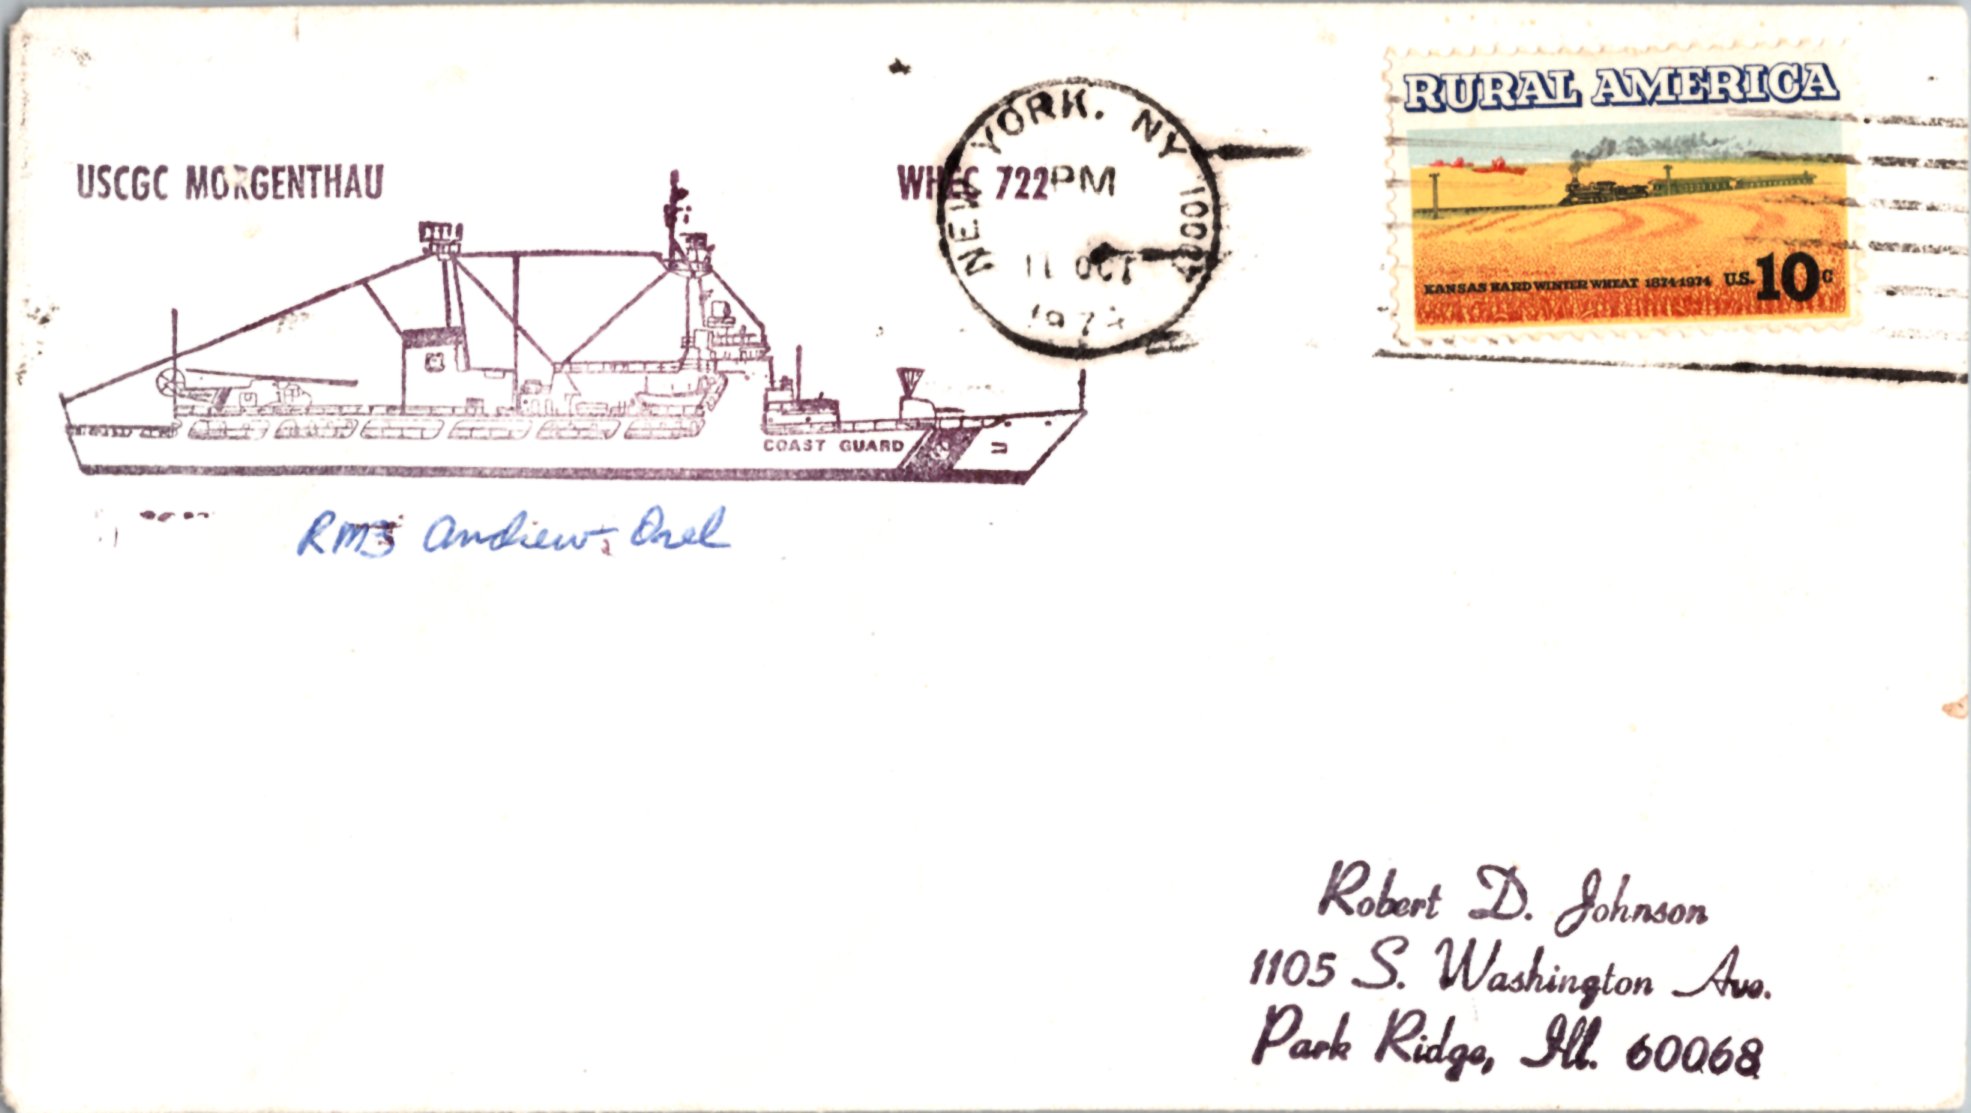 USCGC MORGENTHAU
WHEC 722
NEW YORK, NY 1000
PM
11 OCT
197
RURAL AMERICA
KANSAS HARD WINTER WHEAT 1874-1974 U.S. 10c
COAST GUARD
RM3 Andrew Orel
Robert D. Johnson
1105 S. Washington Ave.
Park Ridge, Ill. 60068